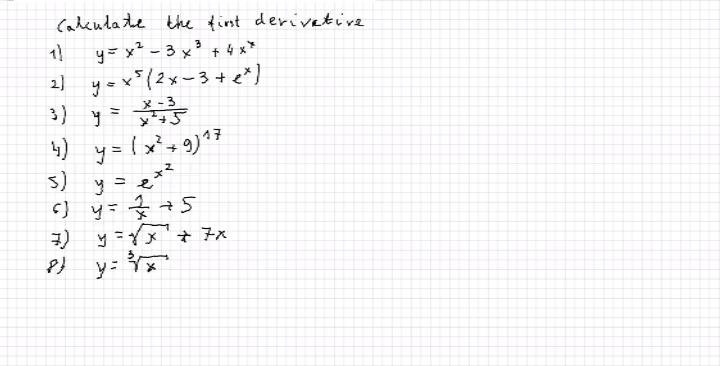 Calculate the first derivative
1) y = x² - 3x³ + 4x⁷
2) y = x⁵(2x - 3 + eˣ)
3) y = (x-3)/(x²+5)
4) y = (x² + 9)¹⁷
5) y = e^x²
6) y = 1/x + 5
7) y = √x + 7x
8) y = ³√x